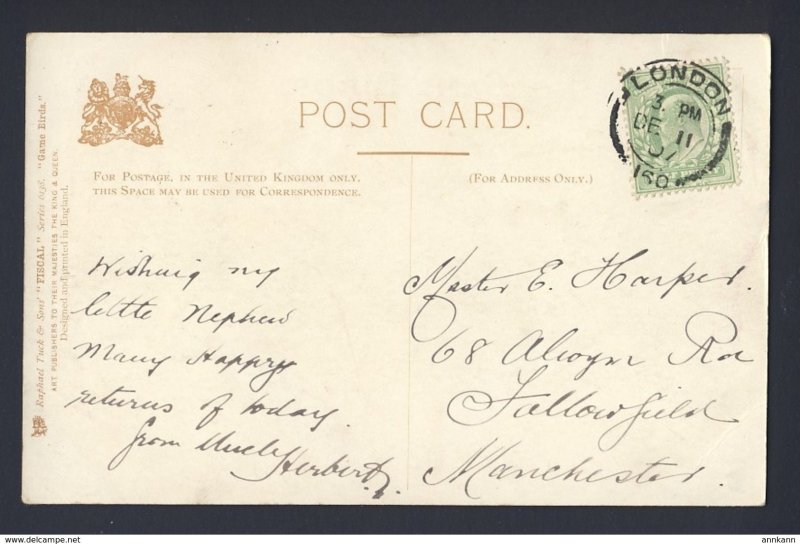 POST CARD.
FOR POSTAGE, IN THE UNITED KINGDOM ONLY,
THIS SPACE MAY BE USED FOR CORRESPONDENCE.
(FOR ADDRESS ONLY.)
LONDON
3. PM
DE 11
07
Raphael Tuck & Sons' "FISCAL" Series 6158. "Game Birds."
ART PUBLISHERS TO THEIR MAJESTIES THE KING & QUEEN.
Designed and printed in England.
Wishing my
little Nephew
Many Happy
returns of today.
from Uncle
Herbert.
Master E. Harper.
68 Alwyn Rd
Fallowfield
Manchester.
www.delcampe.net
annkann